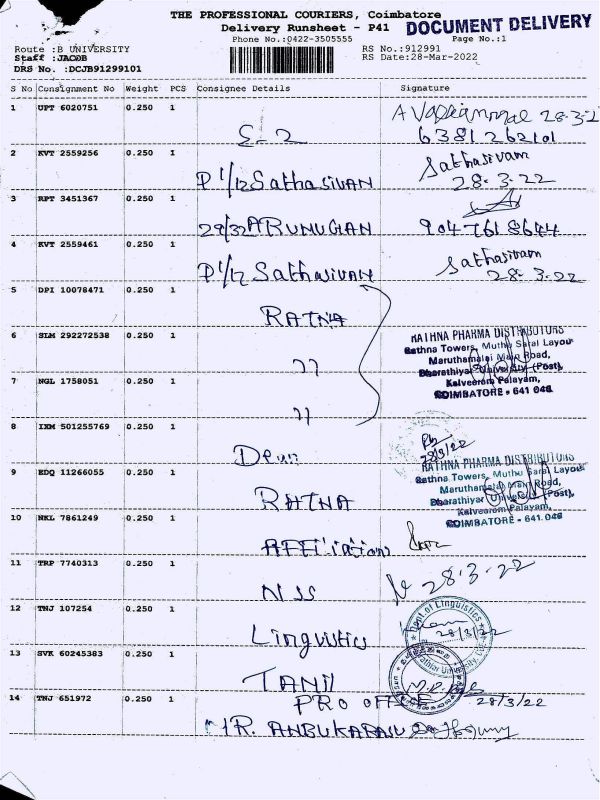 THE PROFESSIONAL COURIERS, Coimbatore
Delivery Runsheet - P41
DOCUMENT DELIVERY
Phone No.:0422-3505555
Page No.:1
Route :B UNIVERSITY
RS No.:912991
Staff :JACOB
RS Date:28-Mar-2022
DRS No. :DCJB91299101
S No Consignment No Weight PCS Consignee Details Signature
1 UPT 6020751 0.250 1
28-3-2
E-2 6381262101
2 KVT 2559256 0.250 1 Sathasivam
P 1/12 Sathasivan 28.3-22
3 RPT 3451367 0.250 1
29/32 ARUMUGAN 9047618644
4 KVT 2559461 0.250 1 Sathasivam
P 1/12 Sathasivan 28.3.22
5 DPI 10078471 0.250 1
RATNA
6 SLM 292272538 0.250 1
RATHNA PHARMA DISTRIBUTORS
Rathna Towers, Muthu Sarai Layout
Maruthamalai Main Road,
Bharathiyar University (Post),
Kalveeram Palayam,
COIMBATORE - 641 046
"
7 NGL 1758051 0.250 1
"
8 IXM 501255769 0.250 1
28/3/22
Dean
9 EDQ 11266055 0.250 1
RATHNA PHARMA DISTRIBUTORS
Rathna Towers, Muthu Sarai Layout
Maruthamalai Main Road,
Bharathiyar University (Post),
Kalveeram Palayam,
COIMBATORE - 641 046
RATNA
10 NKL 7861249 0.250 1
AFFiliation
11 TRP 7740313 0.250 1
28.3.22
NSS
12 TNJ 107254 0.250 1
Dept. of Linguistics
28/3/22
Linguistics
13 SVK 60245383 0.250 1
TAMil
14 TNJ 651972 0.250 1
PRO OFFICE 28/3/22
R. ANBUKARASU